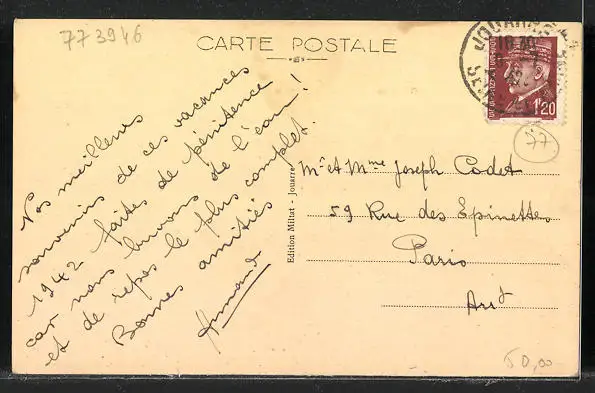 773946
CARTE POSTALE
JOUARRE
1F20
77
Nos meilleurs
souvenirs de ces vacances
1942 faites de pénitence
car nous buvons de l'eau !
et de repos le plus complet
Bonnes amitiés
Armand
Edition Miltat - Jouarre
Mr et Mme Joseph Codet
59 Rue des Epinettes
Paris
50,00